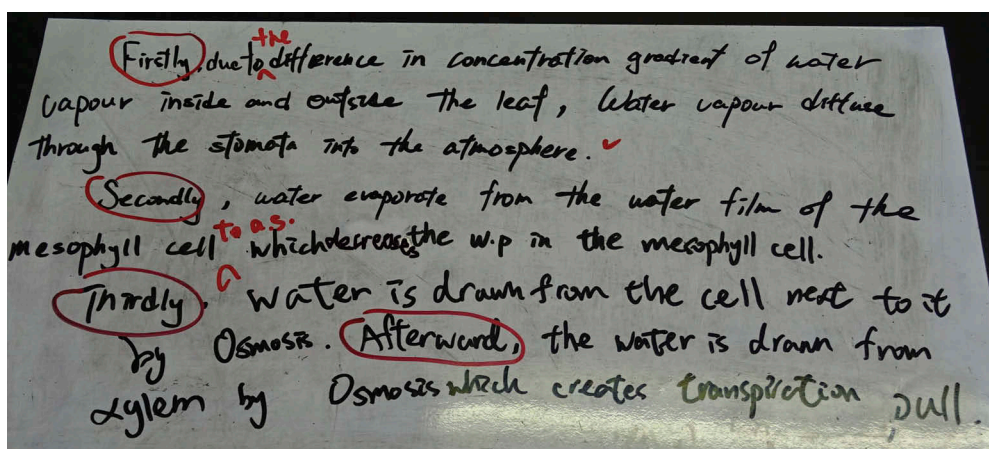 Firstly, due to the difference in concentration gradient of water
vapour inside and outside the leaf, Water vapour diffuse
through the stomata into the atmosphere.
Secondly, water evaporate from the water film of the
mesophyll cell to a.s. which decreases the w.p in the mesophyll cell.
Thirdly, Water is drawn from the cell next to it
by Osmosis. Afterward, the water is drawn from
xylem by Osmosis which creates transpiration pull.